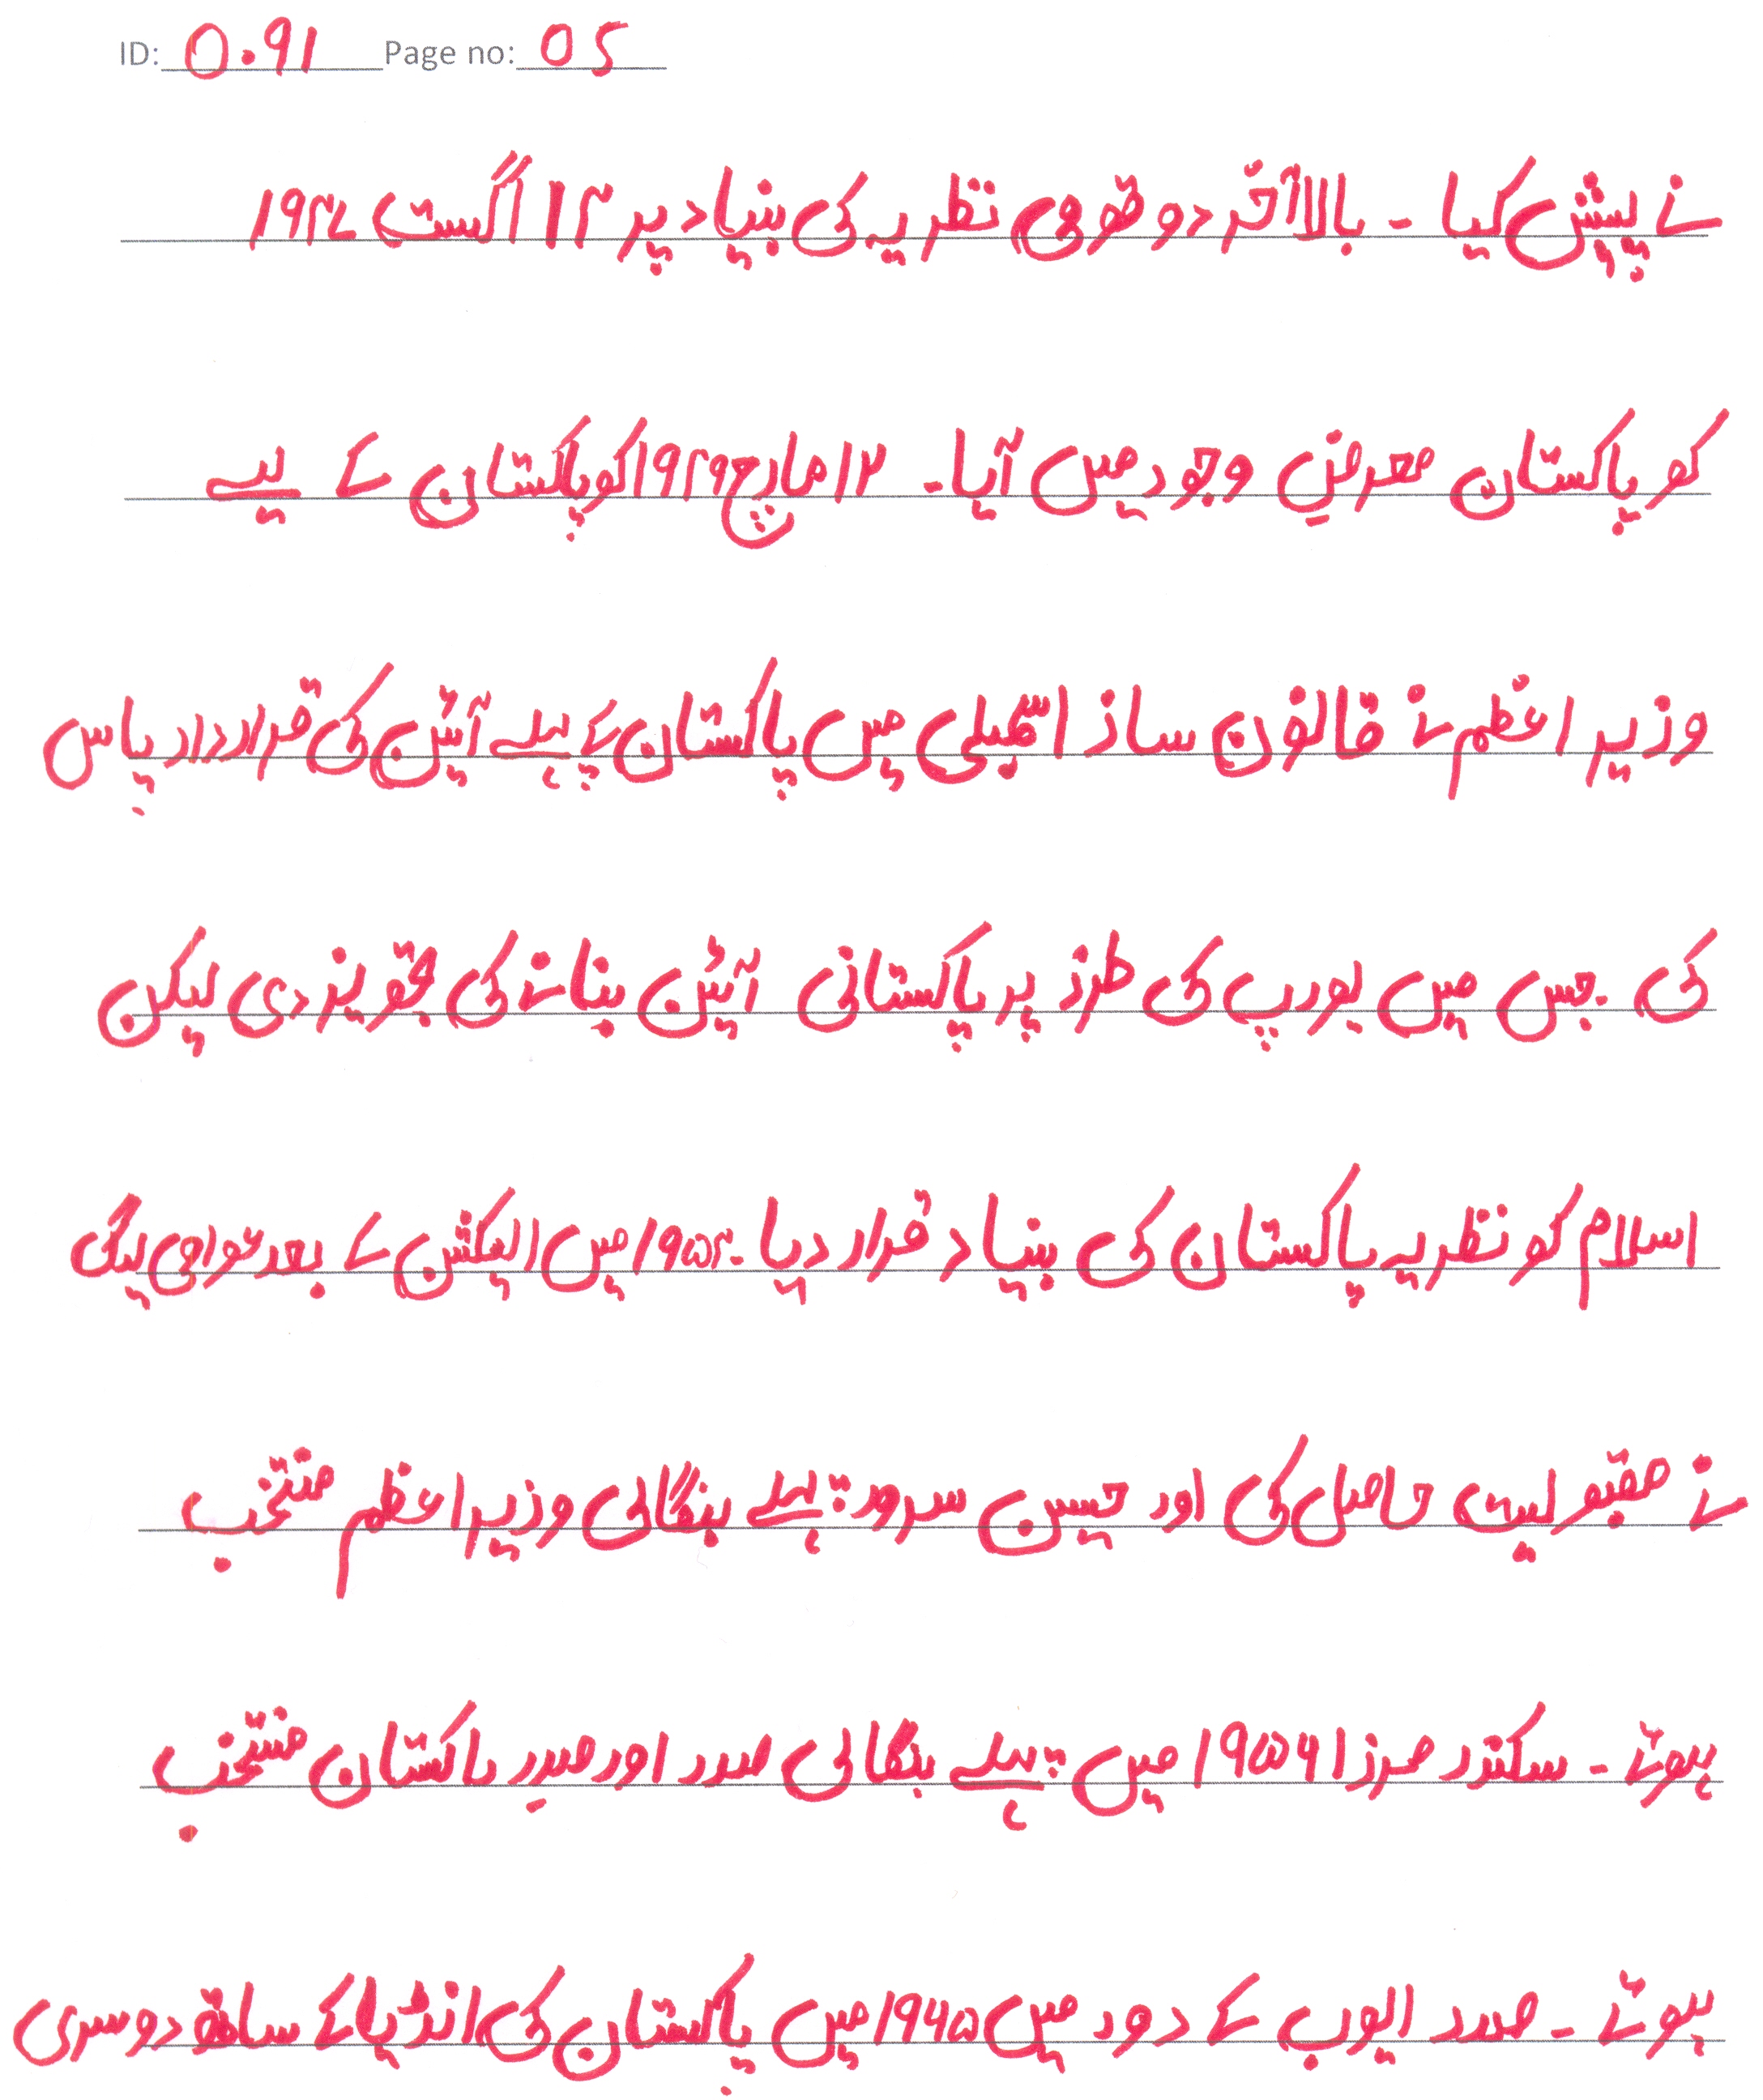 ID: 0.91 Page no: 05
نے پیش کیا ۔ بالاآخر دو قومی نظریہ کی بنیاد پر ۱۴ اگست ۱۹۴۷
کو پاکستان معرض وجود میں آیا ۔ ۱۲ مارچ ۱۹۴۹ کو پاکستان کے لیے
وزیر اعظم نے قانون ساز اسمبلی میں پاکستان کے پہلے آئین کی قرارداد پاس
کی جس میں یورپ کی طرز پر پاکستانی آئین بنانے کی تجویز دی لیکن
اسلام کو نظریہ پاکستان کی بنیاد قرار دیا ۔ ۱۹۵۴ میں الیکشن کے بعد عوامی لیگ
نے مقبولیت حاصل کی اور حسین سرور پہلے بنگالی وزیر اعظم منتخب
ہوئے ۔ سکندر مرزا ۱۹۵۶ میں پہلے بنگالی صدر اور صدر پاکستان منتخب
ہوئے ۔ صدر ایوب کے دور میں ۱۹۶۵ میں پاکستان کی انڈیا کے ساتھ دوسری